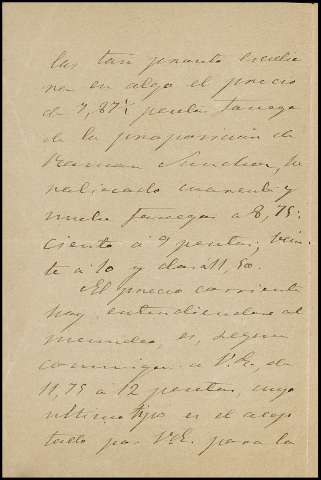 las tan pronto excedie
ra en algo el precio
de 7,87½ peseta fanega
de la proposición de
Roman Sanchez, he
realizado cuarenta y
nueve fanegas a 8,75:
ciento a 9 pesetas; vein-
te a 10 y dos a 11,50.
El precio corriente
hoy, entendiendose al
menudeo, es, segun
comunique a V.E., de
11,75 a 12 pesetas, cuyo
ultimo tipo es el acep
tado por V.E. para la